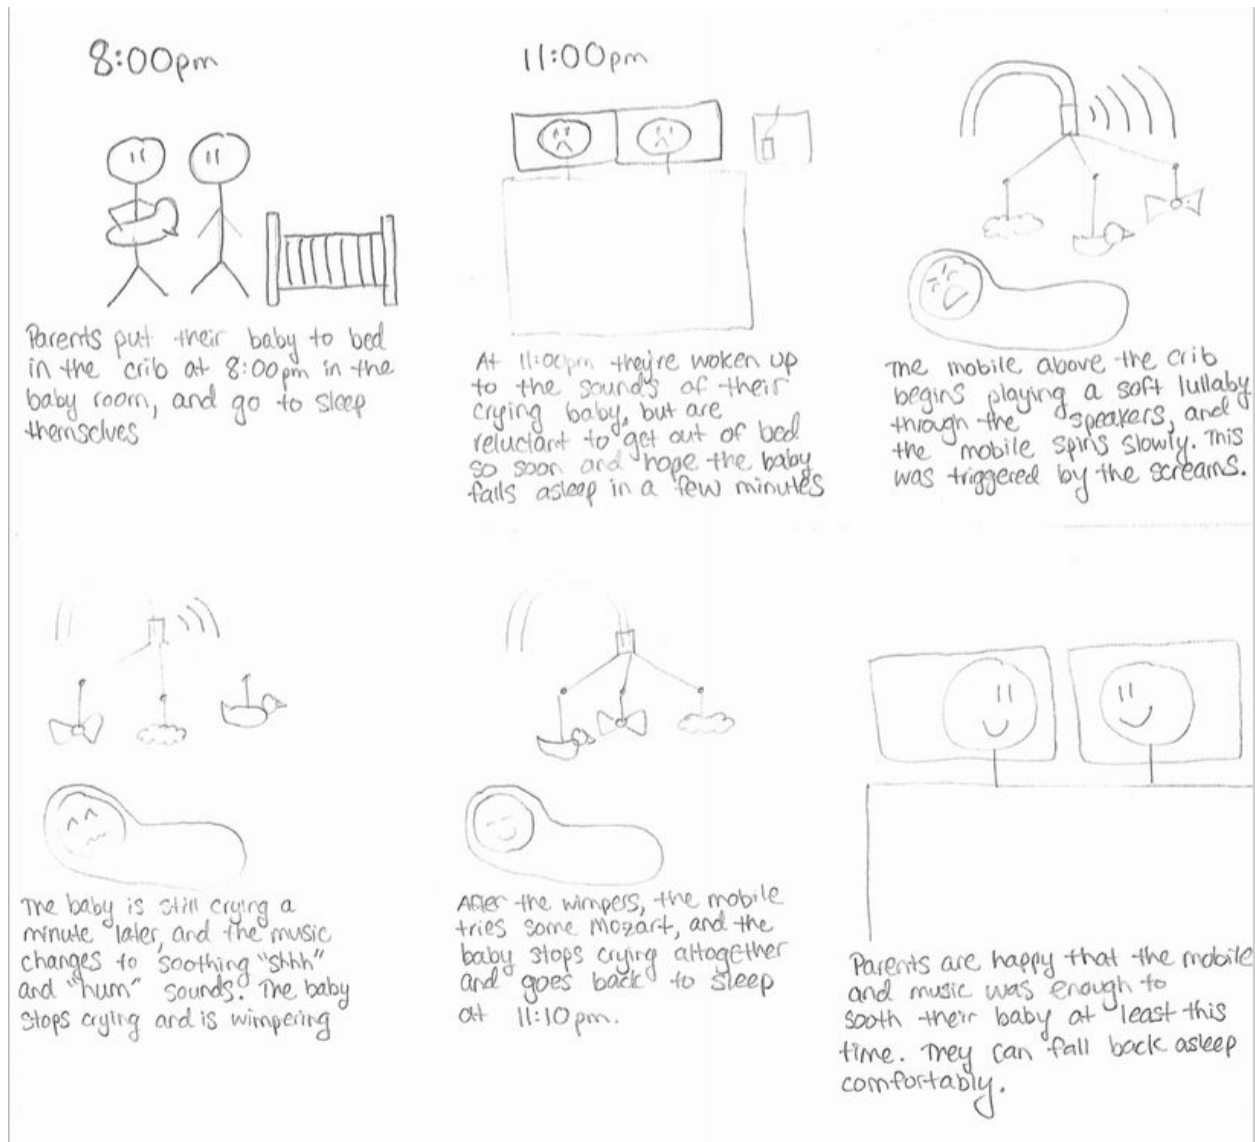 8:00pm
Parents put their baby to bed
in the crib at 8:00pm in the
baby room, and go to sleep
themselves
11:00pm
At 11:00pm they're woken up
to the sounds of their
crying baby, but are
reluctant to get out of bed
so soon and hope the baby
falls asleep in a few minutes
The mobile above the crib
begins playing a soft lullaby
through the speakers, and
the mobile spins slowly. This
was triggered by the screams.
The baby is still crying a
minute later, and the music
changes to soothing "shhh"
and "hum" sounds. The baby
stops crying and is wimpering
After the wimpers, the mobile
tries some Mozart, and the
baby stops crying altogether
and goes back to sleep
at 11:10pm.
Parents are happy that the mobile
and music was enough to
sooth their baby at least this
time. They can fall back asleep
comfortably.